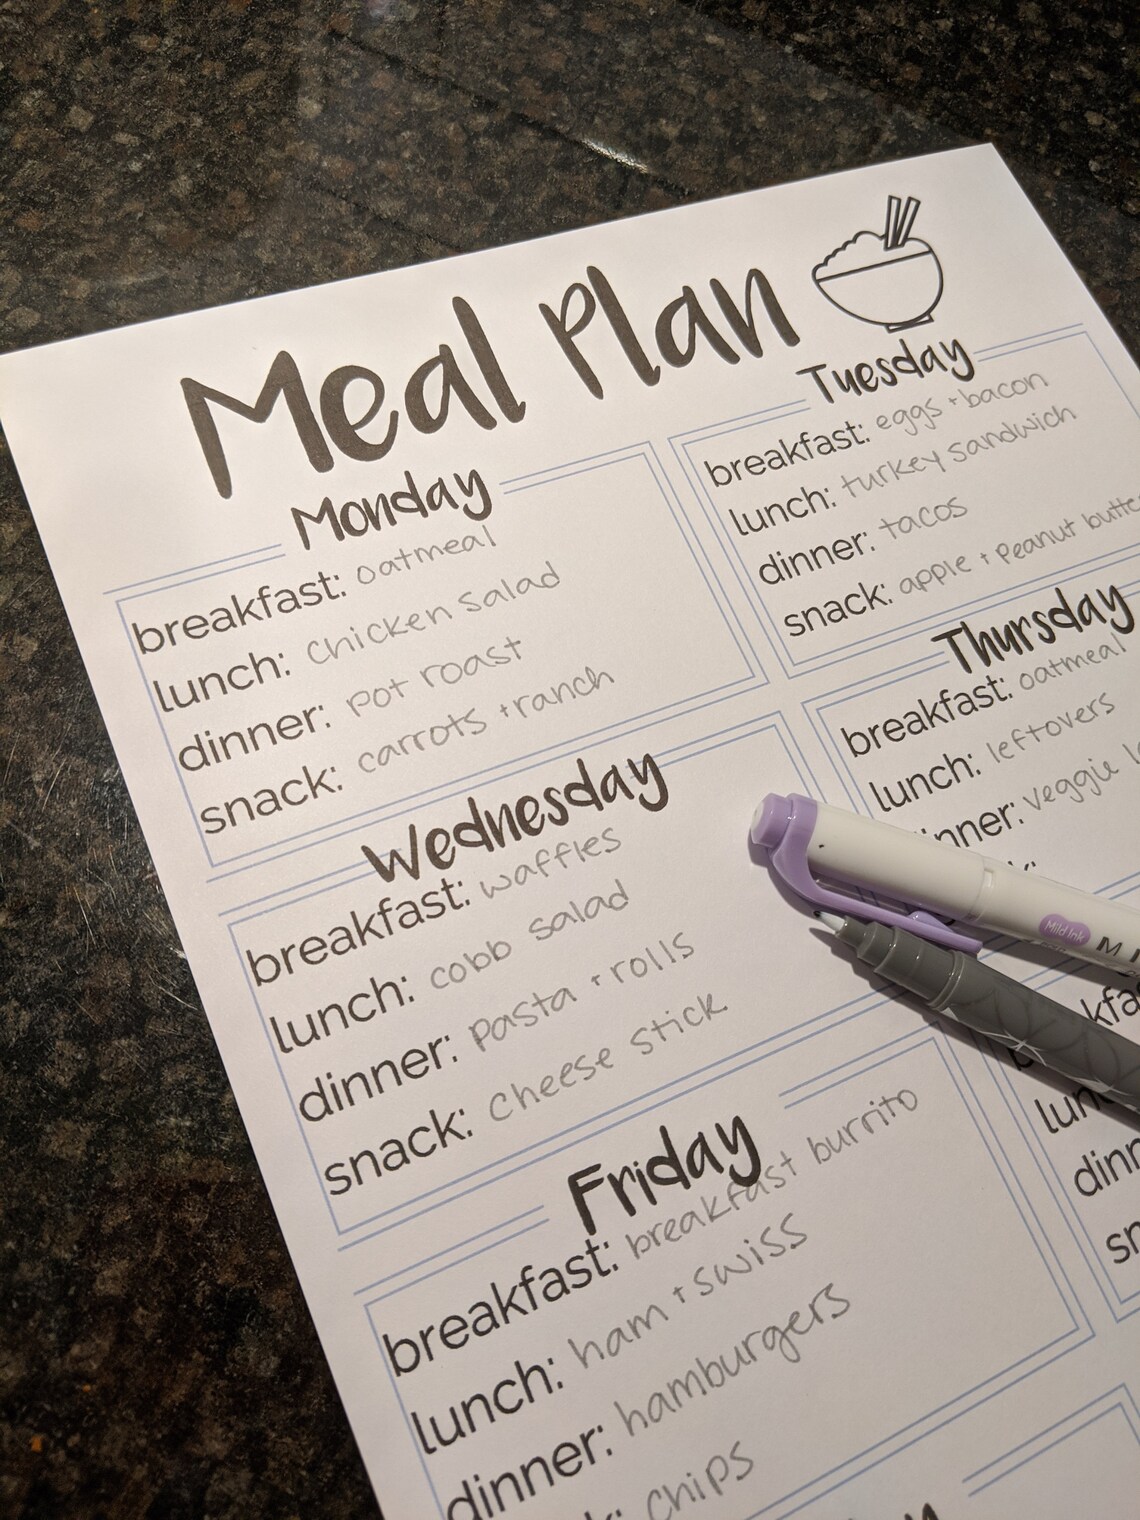 Meal Plan
Monday
breakfast: oatmeal
lunch: chicken salad
dinner: pot roast
snack: carrots + ranch
Tuesday
breakfast: eggs + bacon
lunch: turkey sandwich
dinner: tacos
snack: apple + peanut butte
Wednesday
breakfast: waffles
lunch: cobb salad
dinner: pasta + rolls
snack: cheese stick
Thursday
breakfast: oatmeal
lunch: leftovers
inner: veggie
Mild Ink
Friday
breakfast: breakfast burrito
lunch: ham + swiss
dinner: hamburgers
chips
kfa
lun
dinn
sn